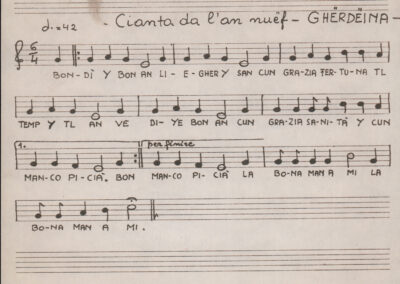 ♩. = 42 - Cianta da l'an nuëf - GHËRDËINA -
6/4
BON-DÌ Y BON AN LI - E-GHER Y SAN CUN GRAZIA FER-TU-NA TL
TEMP Y TL AN VE DI-YE BON AN CUN GRAZIA SA-NI-TÀ Y CUN
1. per finire
MAN-CO PI-CIÀ. BON MAN-CO PI-CIÀ LA BO-NA MAN A MI LA
BO-NA MAN A MI.